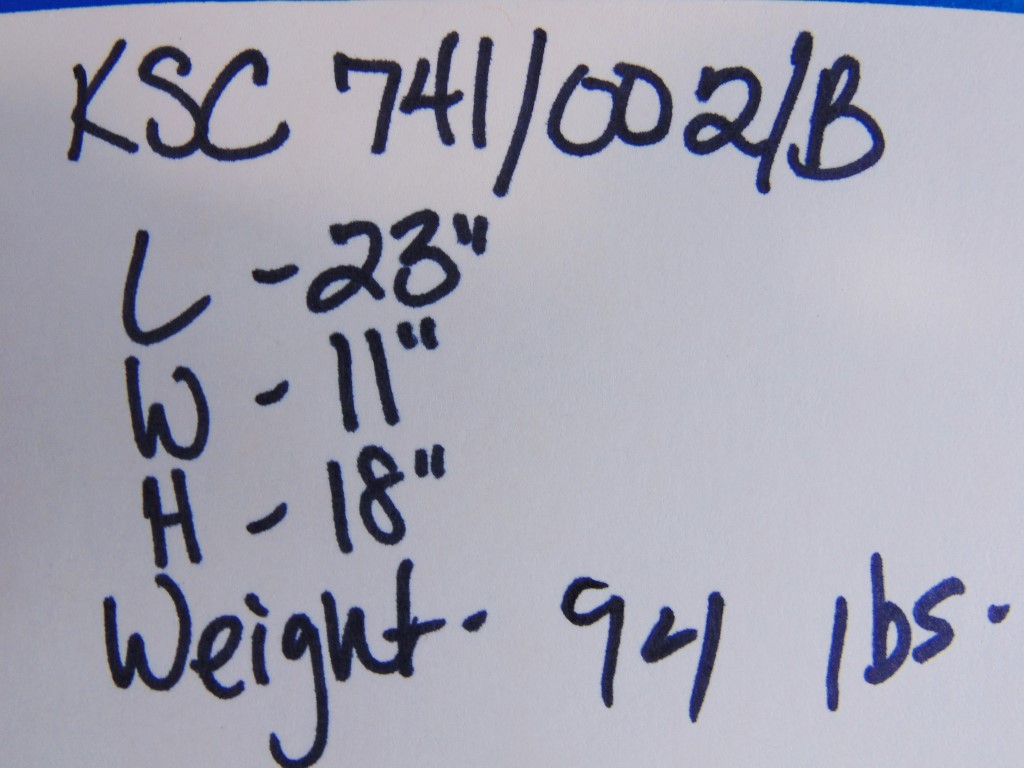 KSC 741/002/B
L - 23"
W - 11"
H - 18"
Weight - 94 lbs.